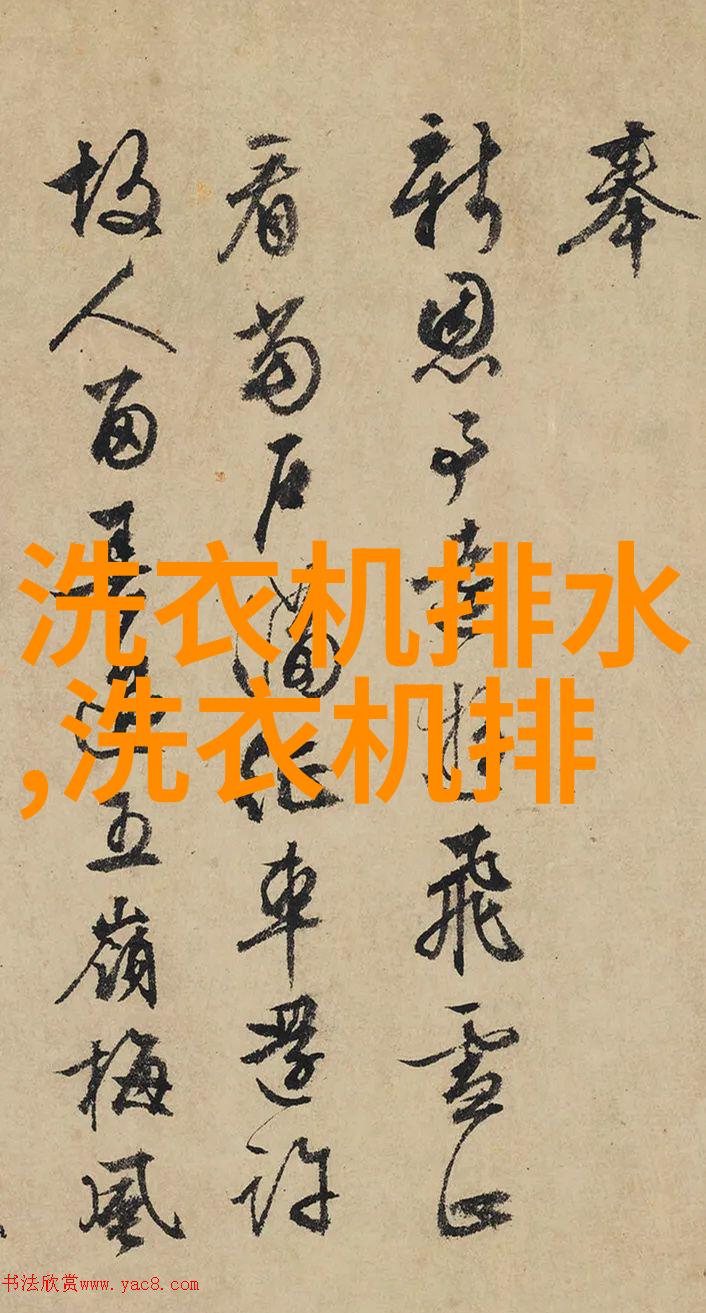 奉
新恩予飛雪正
看車還許
故人留五嶺梅風
洗衣机排水
,洗衣机排
书法欣赏www.yac8.com